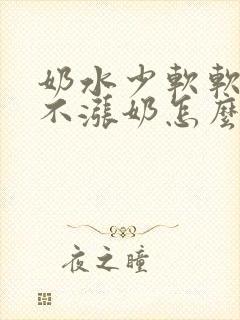 奶水少軟軟
不漲奶怎麼
夜之瞳